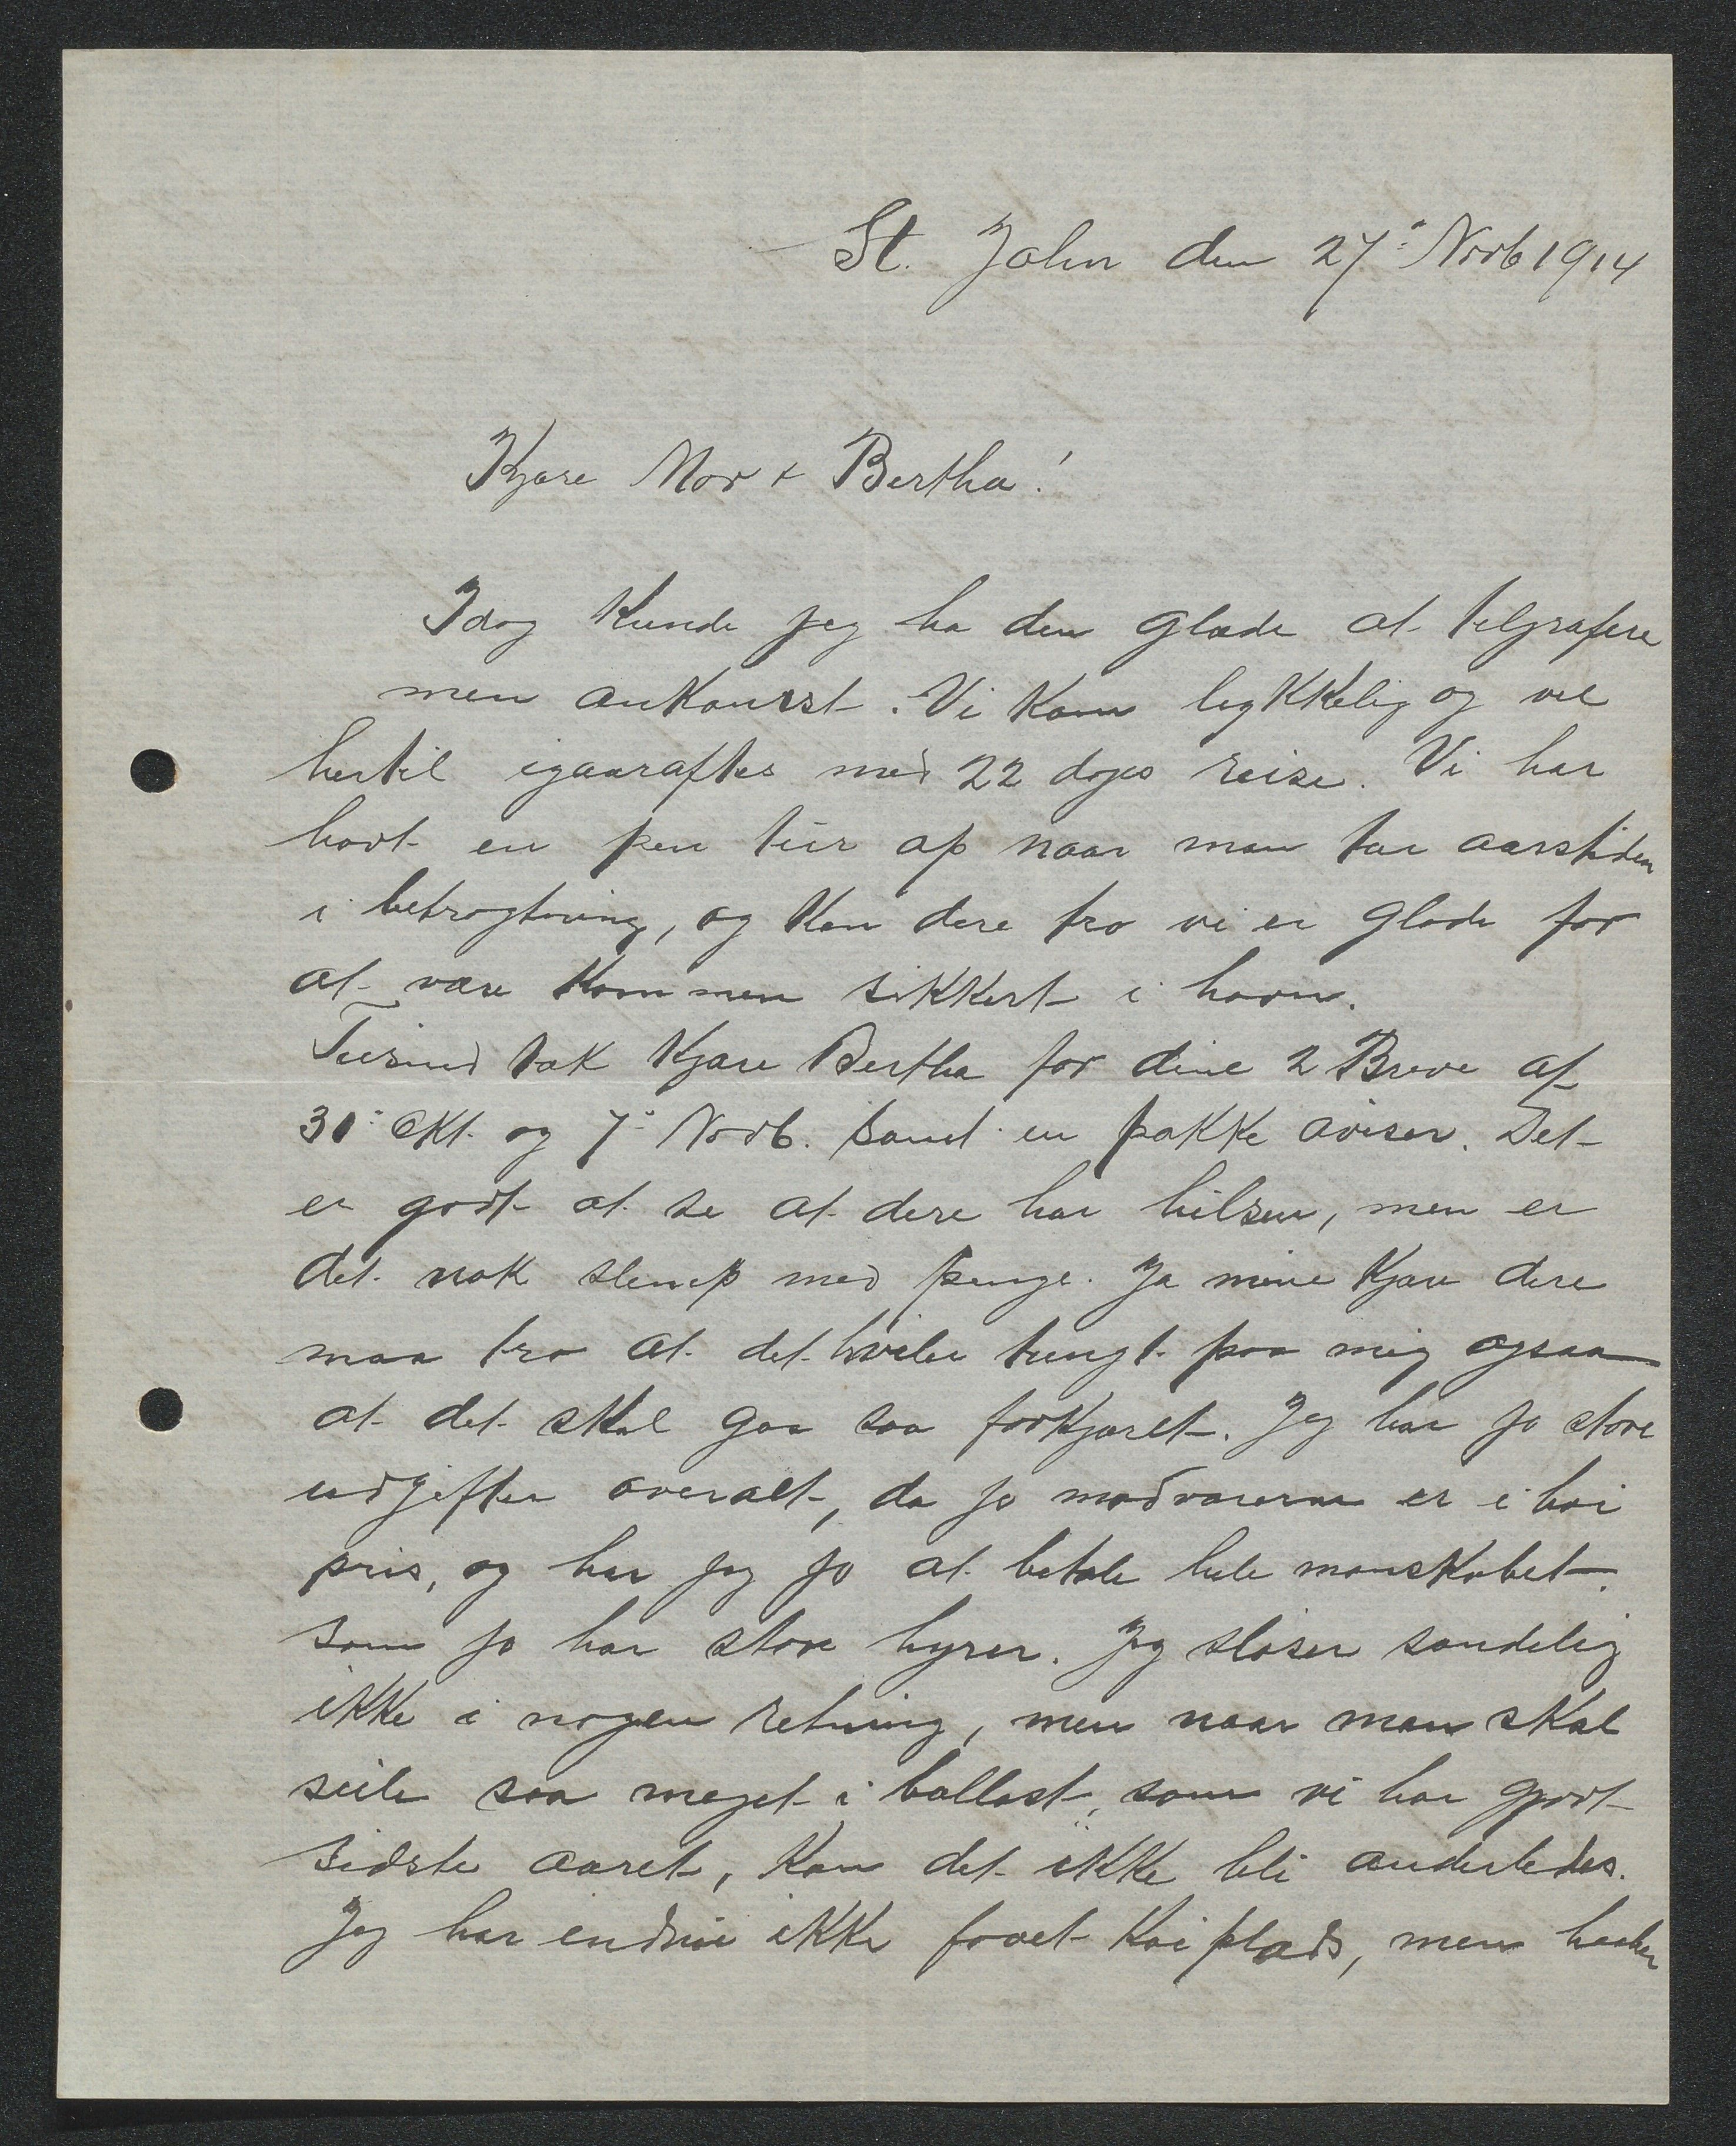 St. John den 27de Novb 1914
Kjære Mor & Bertha!
Idag kunde jeg ha den glæde at telgrafere
men ankomst. Vi kom lykkelig og vel
hertil igaaraftes med 22 dages reise. Vi har
havt en pen tur op naar man tar aarstiden
i betragtning, og kan dere tro vi er glade for
at være kommen sikkert i havn.
Tusind tak kjære Bertha for dine 2 Breve af
31: Okt. og 7: Novb. samt en pakke aviser. Det
er godt at se at dere har hilsen, men er
det nok slemt med penge. Ja mine kjære dere
maa tro at det hviler tungt paa mig ogsaa
at det skal gaa saa forkjært. Jeg har jo store
udgifter overalt, da jo madvarerne er i høi
pris, og har jeg jo at betale hele mandskabet
som jo har store hyrer. Jeg sløser sandelig
ikke i nogen retning, men naar man skal
seile saa meget i ballast, som vi har gjort
sidste aaret, kan det ikke bli anderledes.
Jeg har endnu ikke faaet kaiplads, men haaber